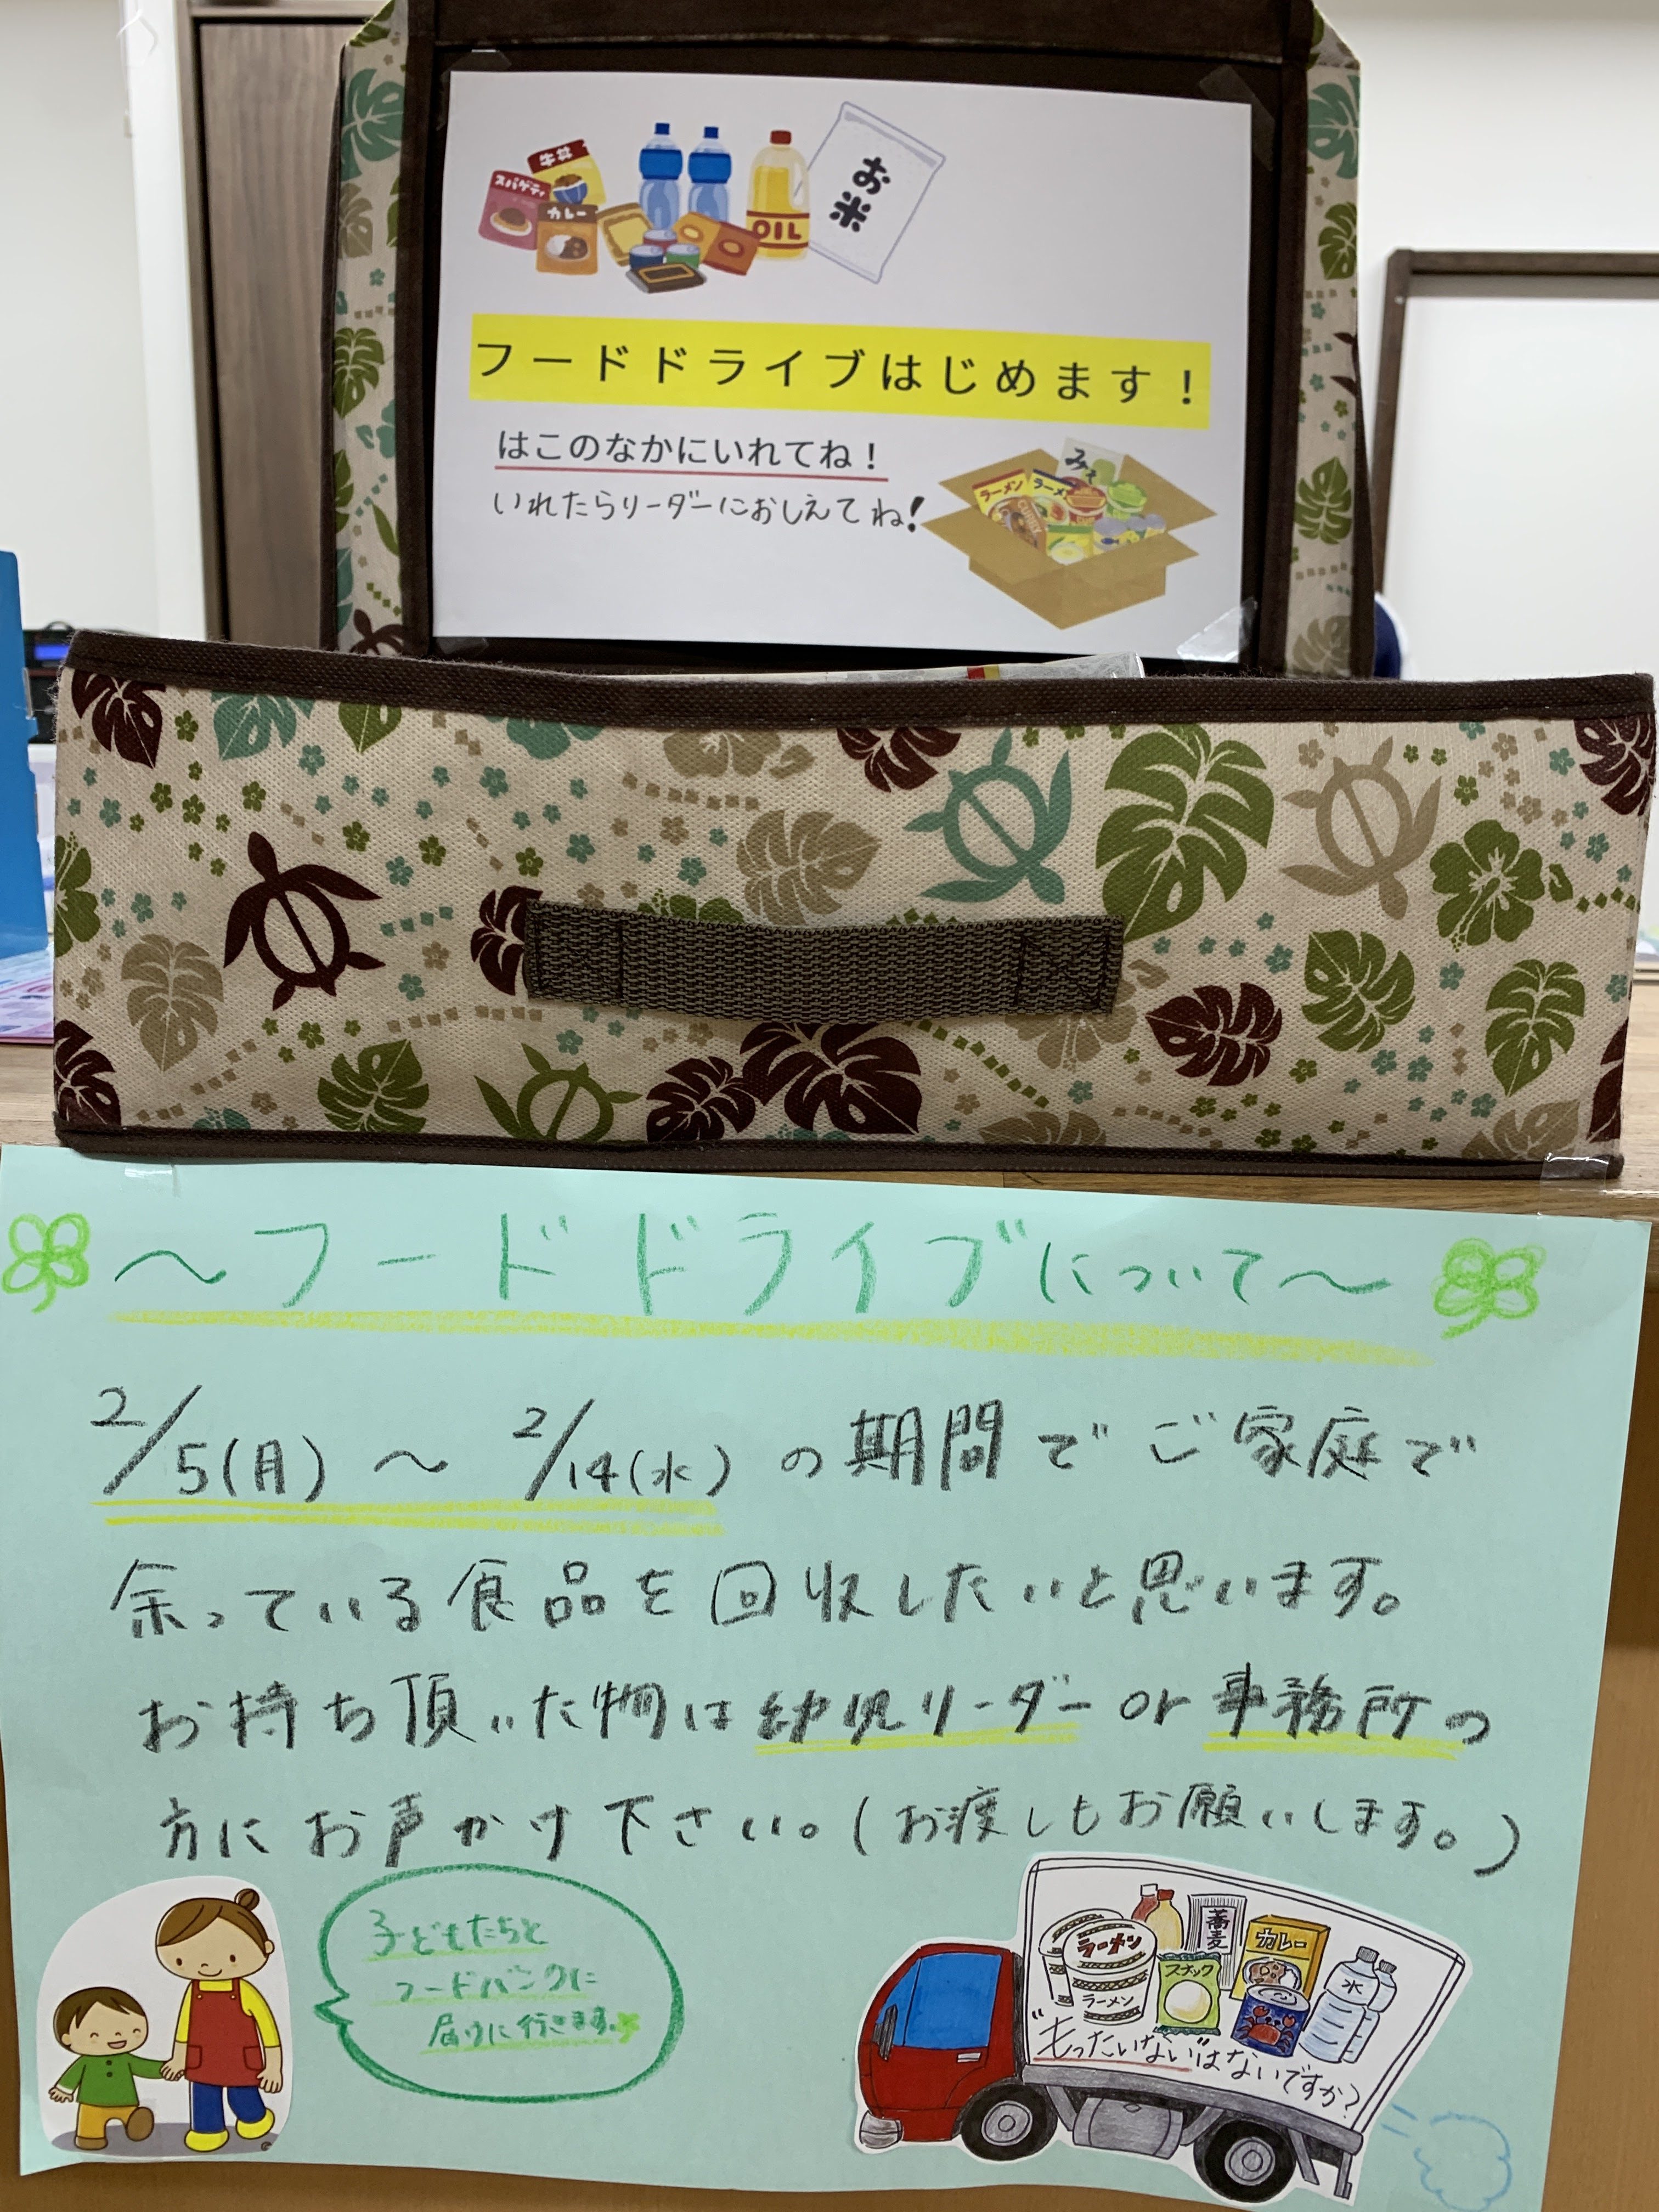 牛丼
スパゲティ
カレー
OIL
お米
フードドライブはじめます！
はこのなかにいれてね！
いれたらリーダーにおしえてね！
みそ
ラーメン
ラーメン
～フードドライブについて～
2/5(月)～2/14(水)の期間でご家庭で
余っている食品を回収したいと思います。
お持ち頂いた物は幼児リーダーor事務所の
方にお声かけ下さい。(お渡しもお願いします。)
子どもたちと
フードバンクに
届けに行きます。
ラーメン
ラーメン
蕎麦
カレー
スナック
水
"もったいない"はないですか？